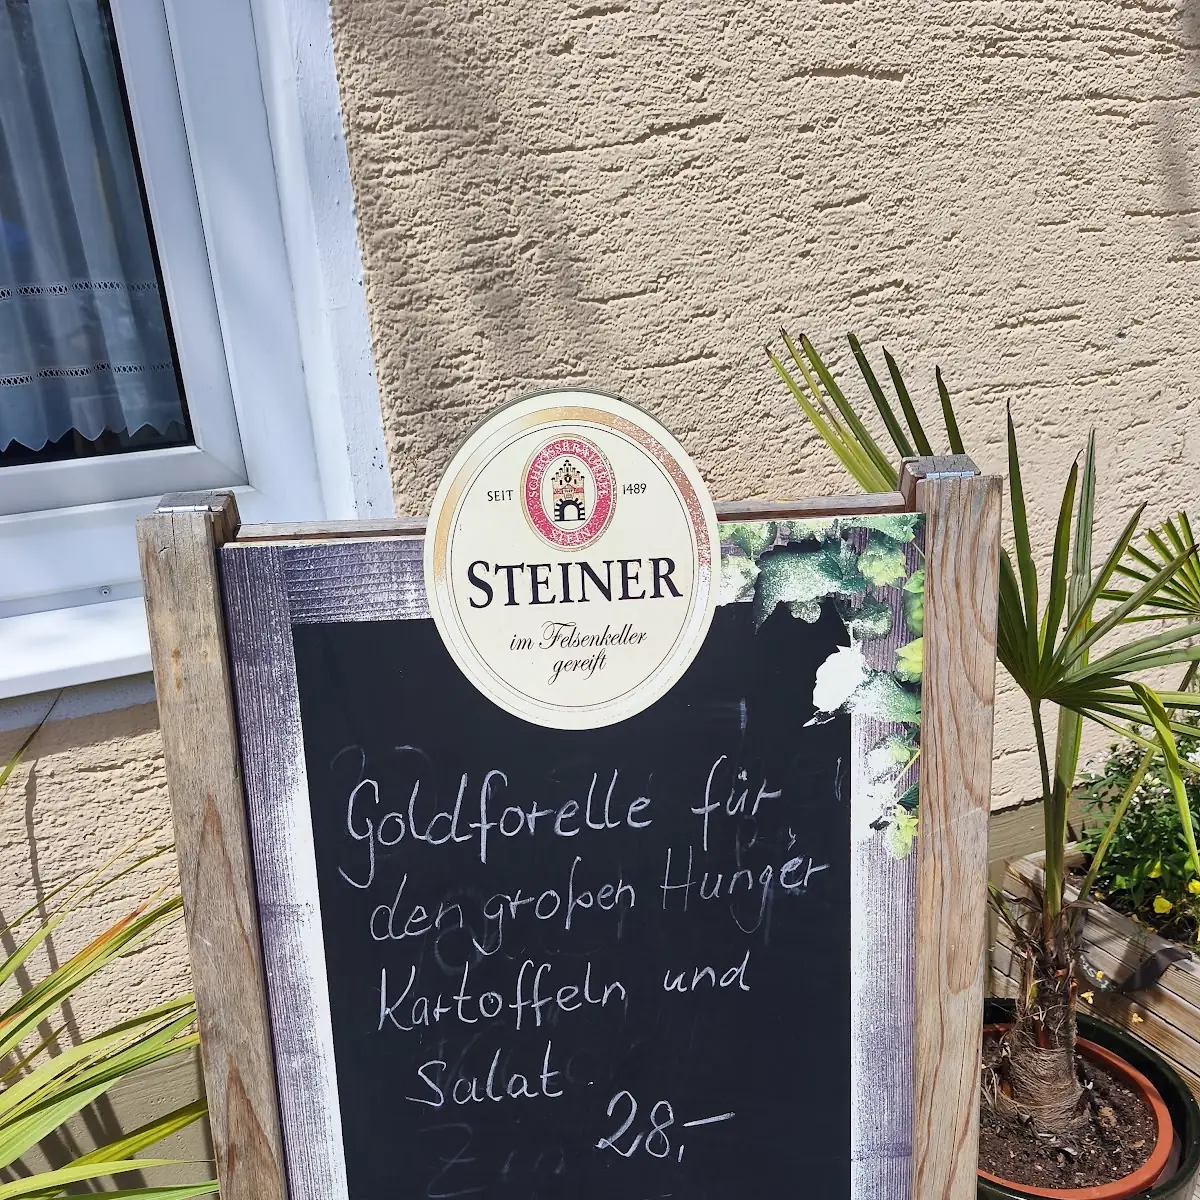 SEIT 1489
SCHLOSSBRAUEREI
STEIN
STEINER
im Felsenkeller
gereift
Goldforelle für
den großen Hunger
Kartoffeln und
Salat
28,-